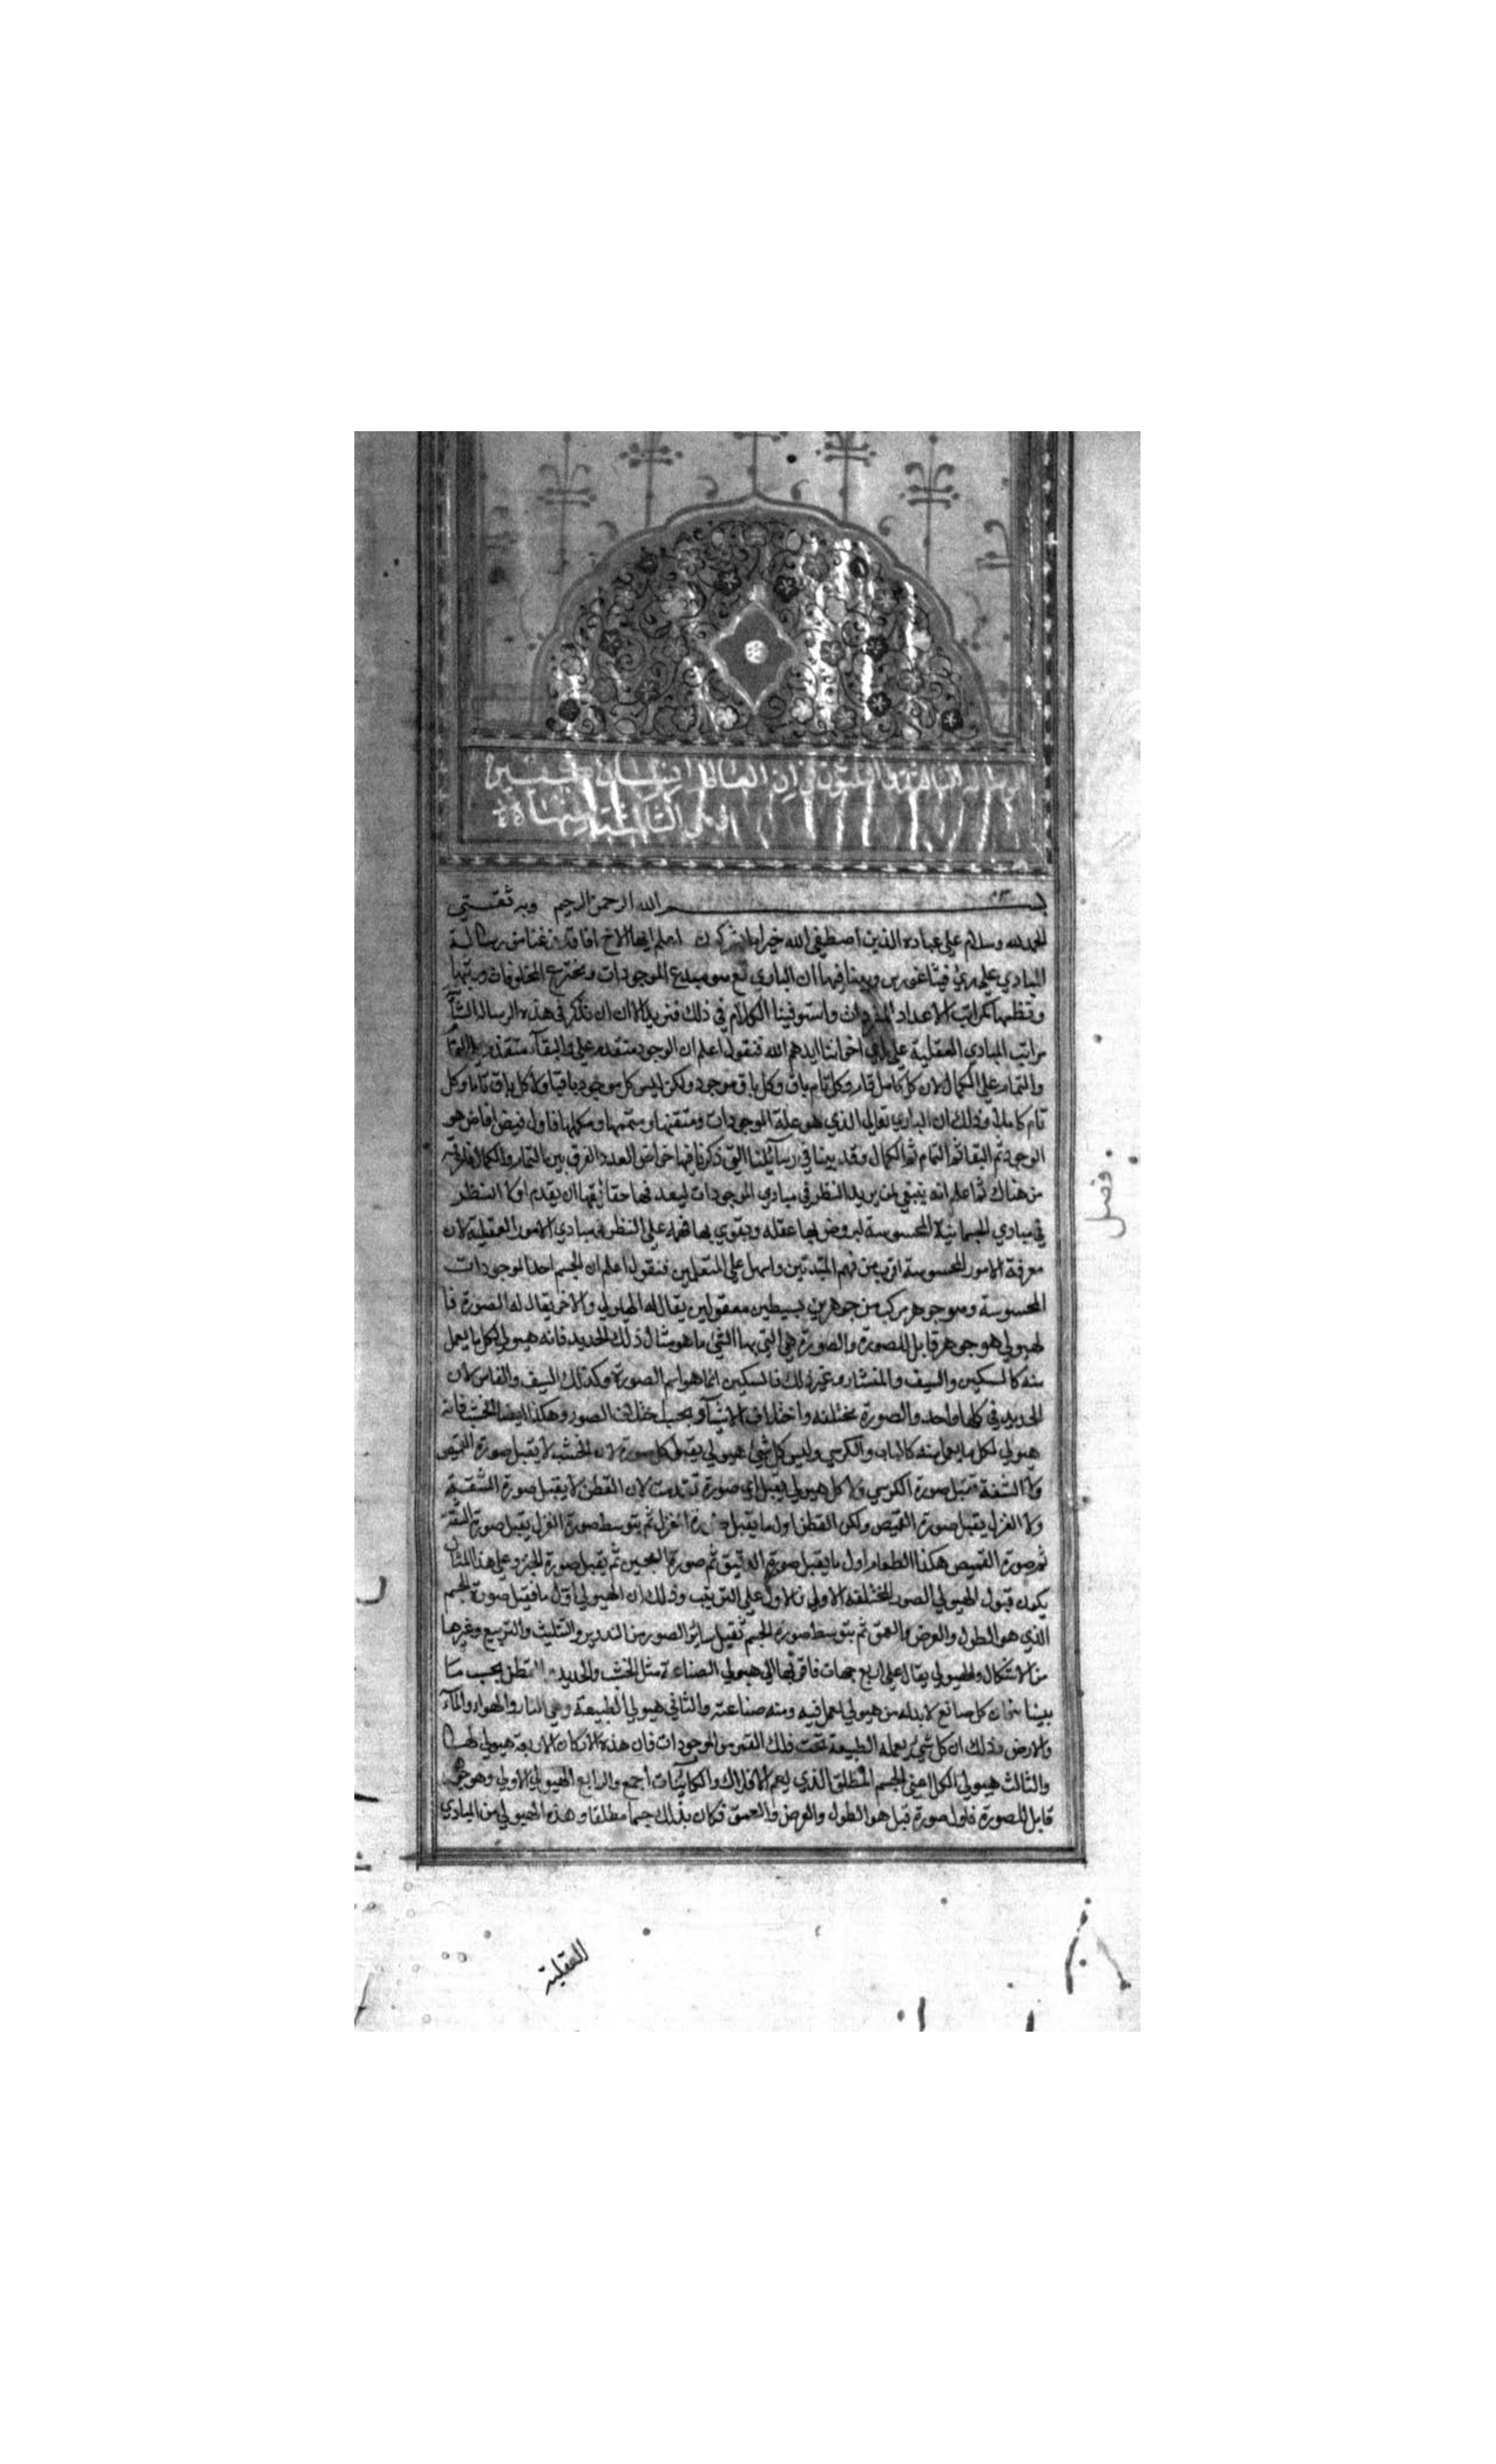 الرسالة الثالثة والثلثون في ان العالم انسان كبير
بسم الله الرحمن الرحيم وبه ثقتي
الحمد لله وسلام على عباده الذين اصطفى الله خير اما يشركون اعلم ايها الاخ انا قد فرغنا من رسالة
المبادي على راي فيثاغورس وبينا فيها ان الباري تع هو مبدع الموجودات ومخترع المخلوقات ورتبها
ونظمها كمراتب الاعداد المفردات واستوفينا الكلام في ذلك فنريد الان ان نذكر في هذه الرسالة
مراتب المبادي العقلية على راي اخواننا ايدهم الله فنقول اعلم ان الوجود متقدم على البقاء متقدم
والتمام على الكمال لان كل كامل تام وكل تام باق وكل باق موجود ولكن ليس كل موجود باقيا ولا كل باق تاما وكل
تام كاملا وذلك ان الباري تعالى الذي هو علة الموجودات ومتقنها ومتممها ومكملها فاول فيض افاض هو
الوجود ثم البقا ثم التمام ثم الكمال وقد بينا في رسائلنا التي ذكرنا فيها خواص العدد الفرق بين التمام والكمال
من هناك ثم اعلم انه ينبغي لمن يريد النظر في مبادي الموجودات ليعرف حقائقها ان يقدم اولا النظر
في مبادي الجسمانية المحسوسة ليروض بها عقله ويقوي بها فهمه على النظر في مبادي الامور العقلية لان
معرفة الامور المحسوسة اقرب من فهم المبتدئين واسهل على المتعلمين فنقول اعلم ان الجسم احد الموجودات
المحسوسة وهو جوهر مركب من جوهرين بسيطين معقولين يقال له الهيولى والاخر يقال له الصورة فا
لهيولى هو جوهر قابل للصورة والصورة هي التي بها الشي ما هو مثال ذلك الحديد فانه هيولى لكل ما يعمل
منه كالسكين والسيف والمنشار وغير ذلك فالسكين انما هو اسم الصورة وكذلك السيف والفاس لان
الحديد في كلها واحد والصورة مختلفة واختلاف الاشياء بحسب اختلاف الصور وهكذا ايضا الخشب فانه
هيولى لكل ما يعمل منه كالباب والكرسي وليس كل شي هيولى يقبل كل صورة لان الخشب لا يقبل صورة القميص
ولا الشقة تقبل صورة الكرسي ولا كل هيولى يقبل اي صورة تقدمت لان القطن لا يقبل صورة الشقة
ولا الغزل يقبل صورة القميص ولكن القطن اول ما يقبل صورة الغزل ثم بتوسط صورة الغزل يقبل صورة الشقة
ثم صورة القميص هكذا الطعام اول ما يقبل صورة الدقيق ثم صورة العجين ثم يقبل صورة الخبز وعلى هذا المثال
يكون قبول الهيولى الصور المختلفة الاولى فالاول على الترتيب وذلك ان الهيولى اول ما قبل صورة الجسم
الذي هو الطول والعرض والعمق ثم بتوسط صورة الجسم تقبل سائر الصور من التدوير والتثليث والتربيع وغيرها
من الاشكال والهيولى يقال على اربع جهات فاقربها الى هيولى الصناعة مثل الخشب والحديد والقطن بحسب ما
بينا فان كل صانع لا بد له من هيولى يعمل فيه ومنه صناعته والثاني هيولى الطبيعة وهي النار والهواء والماء
والارض وذلك ان كل شي يعمله الطبيعة تحت فلك القمر من الموجودات فان هذه الاركان الاربعة هيولى لها
والثالث هيولى الكل اعني الجسم المطلق الذي يعم الافلاك والكائنات اجمع والرابع الهيولى الاولى وهو جوهر
قابل للصورة فاول صورة قبل هو الطول والعرض والعمق فكان بذلك جسما مطلقا وهذه الهيولى من المبادي
العقلية
فصل